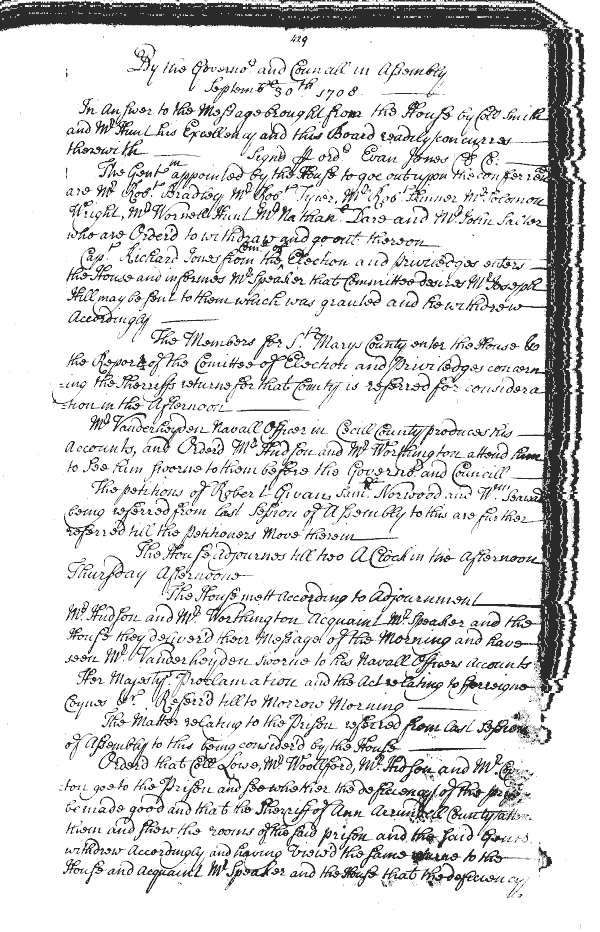 429
By the Governo.r and Councill in Assembly
Septemb.r 30.th 1708.
In Answer to the Message brought from the House by Coll Smith
and M.r Hunt his Excellency and this Board readily concurres
therewith Signd p ord.r Evan Jones Cl. C.
The Gent.m appointed by the House to goe out upon the conferrence
are M.r Rob.t Bradley M.r Rob.t Tyler, M.r Rob.t Skinner M.r Solomon
Wright, M.r Wornell Hunt M.r Nathan.l Dare and M.r John Salter
who are Orderd to withdraw and go out thereon
Cap.t Richard Jones from the Com.ee of Election and priviledges enters
the House and informes M.r Speaker that Committee desires M.r Joseph
Hill may be sent to them which was granted and he withdrew
Accordingly
The Members for S.t Marys County enter the House &
the Report of the Comittee of Election and Priviledges concern
ing the Sherriffs returne for that County is referred for considera
tion in the Afternoon
M.r Vanderheyden Navall Officer in Cecill County produces his
Accounts, and Orderd M.r Hudson and M.r Worthington attend him
to see him sworne to them before the Governo.r and Councill
The petitions of Robert Givan, Sam.l Norwood and W.m
being referred from last Session of Assembly to this are further
referred till the Petitioners Move therein
The House Adjournes till two A Clock in the Afternoon
Thursday Afternoone
The House mett According to Adjournment
M.r Hudson and M.r Worthington Acquaint M.r Speaker and the
House they deliverd their Message of the Morning and have
seen M.r Vanderheyden sworne to his Navall Officers Accounts
Her Majestys Proclamation and the Act relating to forreigne
Coynes &c. Referrd till to Morrow Morning
The Matter relating to the Prison referred from last Session
of Assembly to this being considerd by the House
Orderd that Coll Lowe, M.r Woolford, M.r Hudson and M.r
ton goe to the Prison and see whether the deficiency of the
be made good and that the Sherriff of Ann Arrundell County attend
them and shew the rooms of the said prison and the said Gent.
withdrew Accordingly and having Viewd the same returne to the
House and Acquaint M.r Speaker and the House that the deficiency